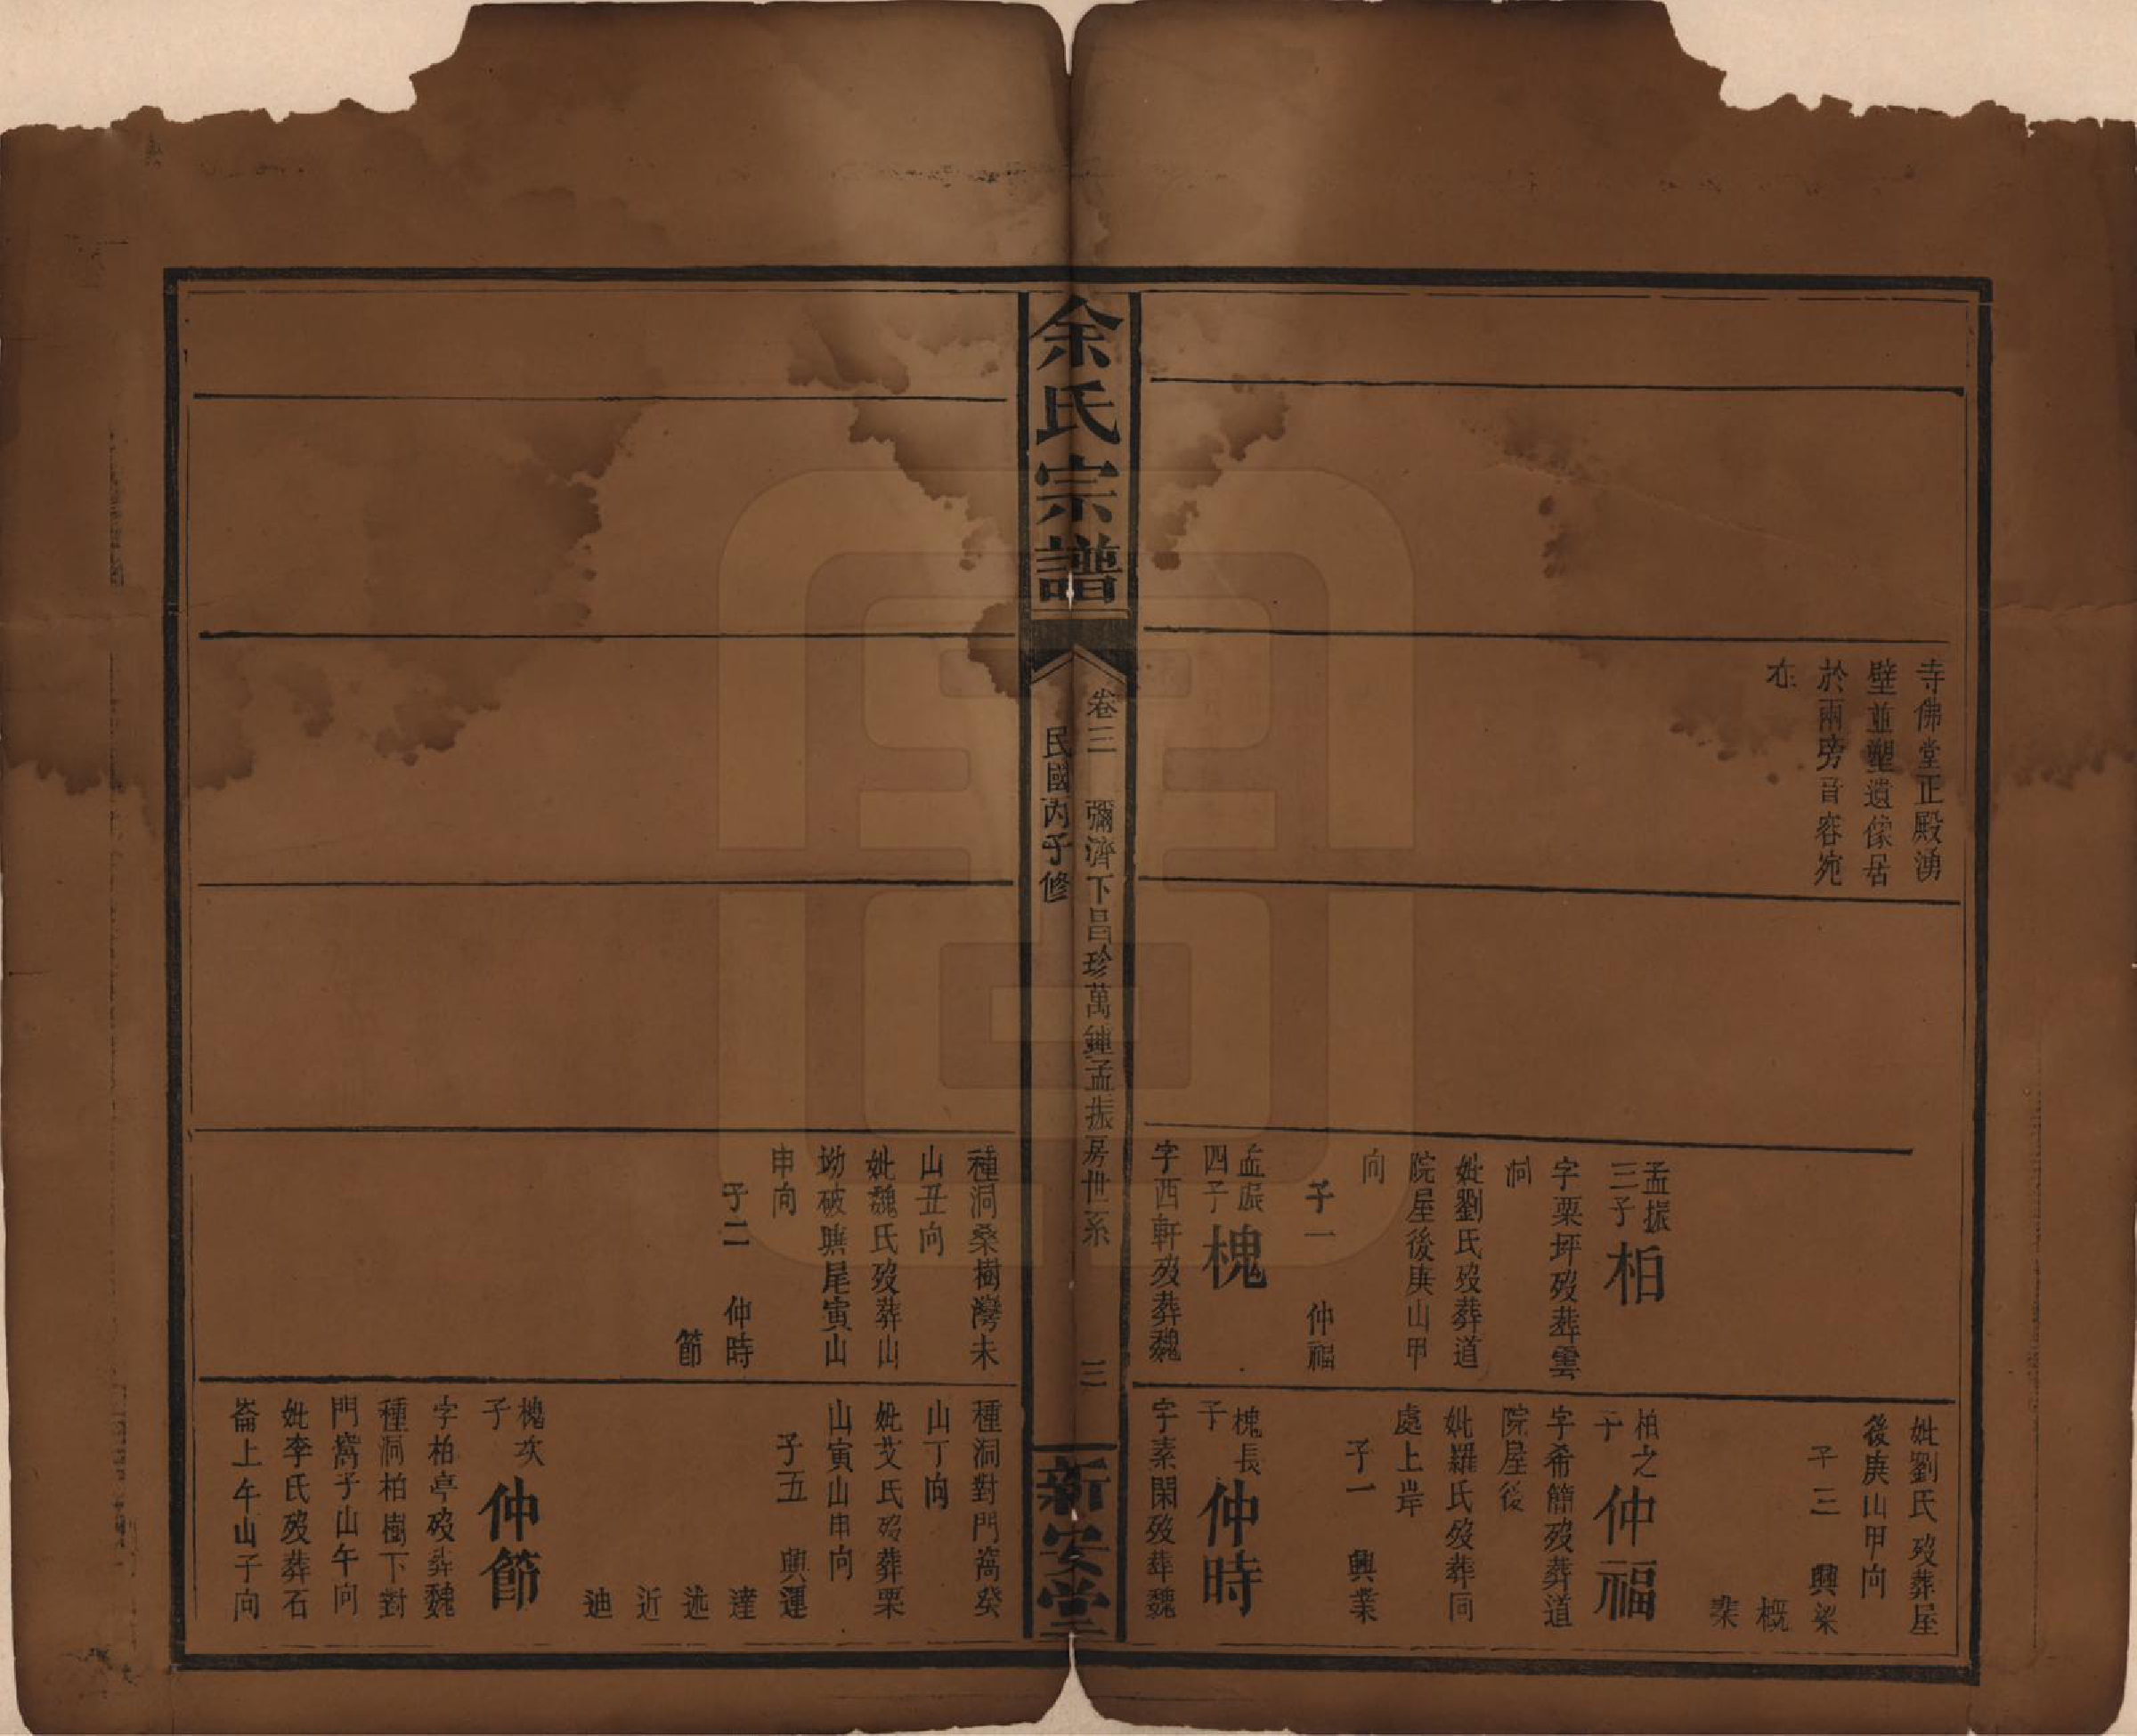 寺佛堂正殿湧
壁並塑遺像居
於兩旁音容宛
在
孟振三子柏
字栗坪歿葬雲
洞
妣劉氏歿葬道
院屋後庚山甲
向
子一 仲福
孟振四子槐
字西軒歿葬魏
妣劉氏歿葬屋
後庚山甲向
子三 興梁
概
柏之子仲福
字希簡歿葬道
院屋後
妣羅氏歿葬同
處上岸
子一 興業
槐長子仲時
字素閑歿葬魏
余氏宗譜
卷三 彌濟下昌珍萬鍾孟振房世系 三
民國丙子修
新安堂
種洞桑樹灣未
山丑向
妣魏氏歿葬山
坳破塘尾寅山
申向
子二 仲時
節
種洞對門窩癸
山丁向
妣艾氏歿葬栗
山寅山申向
子五 興運
達
述
近
迪
槐次子仲節
字柏亭歿葬魏
種洞柏樹下對
門窩子山午向
妣李氏歿葬石
崙上午山子向